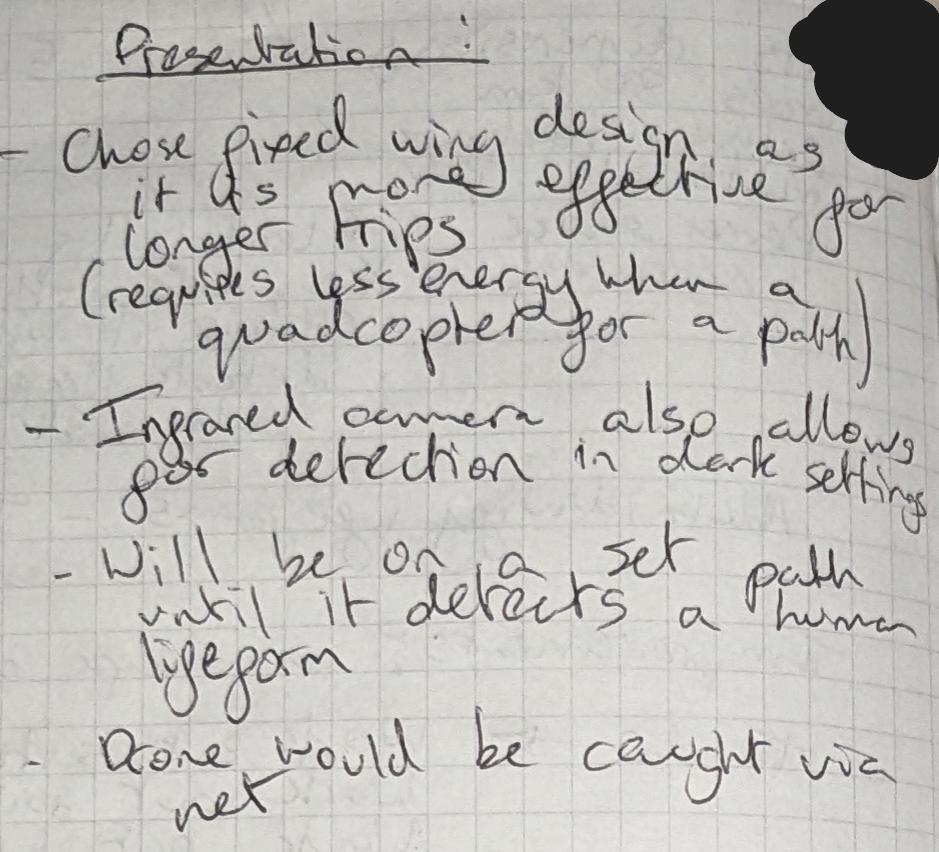 Presentation :
- Chose fixed wing design as
it is more effective for
longer trips
(requires less energy when a
quadcopter for a path)
- Infrared camera also allows
for detection in dark settings
- Will be on a set path
until it detects a human
lifeform
- Drone would be caught via
net